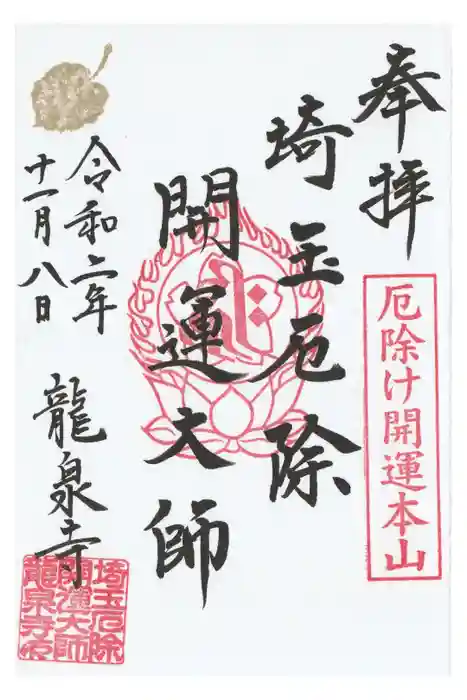 奉拝
厄除け開運本山
埼玉厄除
開運大師
令和二年
十一月八日
龍泉寺
埼玉厄除
開運大師
龍泉寺